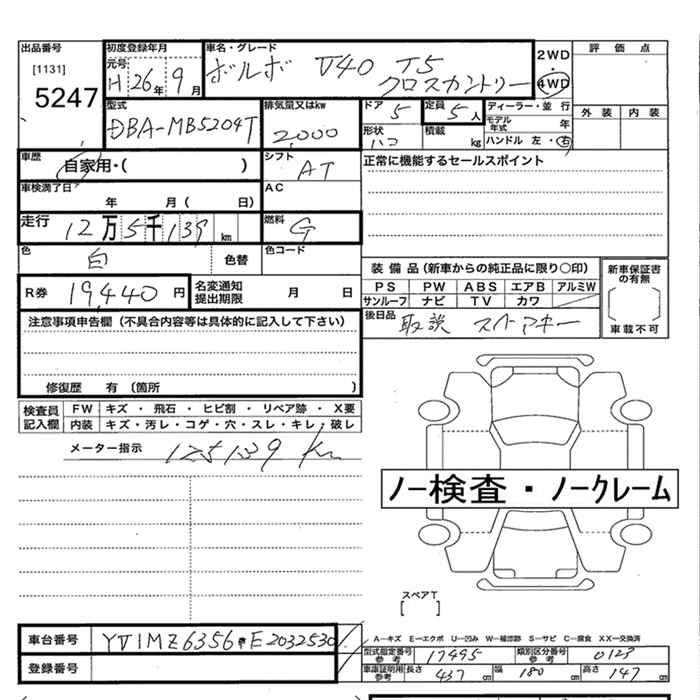 出品番号
[1131]
5247
初度登録年月
元号
H 26年 9月
車名・グレード
ボルボ V40 T5
クロスカントリー
2WD
4WD
評価点
外装 内装
型式
DBA-MB5204T
排気量又はkw
2,000
ドア 5
定員 5人
ディーラー・並行
モデル年式 年
形状 ハコ
積載 kg
ハンドル 左・右
車歴
自家用・( )
シフト
AT
正常に機能するセールスポイント
車検満了日
年 月( 日)
AC
走行
12万5千139km
燃料
G
色
白
色替
色コード
装備品(新車からの純正品に限り○印)
PS PW ABS エアB アルミW
サンルーフ ナビ TV カワ
新車保証書の有無
車載不可
R券 19,440円
名変通知
提出期限
月 日
後日品 取説 スペアキー
注意事項申告欄(不具合内容等は具体的に記入して下さい)
修復歴 有(箇所 )
検査員記入欄
FW キズ・飛石・ヒビ割・リペア跡・X要
内装 キズ・汚レ・コゲ・穴・スレ・キレ・破レ
メーター指示 125139 km
ノー検査・ノークレーム
スペアT
[ ]
車台番号 YV1MZ6356*E2032530
登録番号
A-キズ E-エクボ U-凹み W-補修跡 S-サビ C-腐食 XX-交換済
型式指定番号参考 17495
類別区分番号参考 0123
車庫証明用参考 長さ 437cm 幅 180cm 高さ 147cm